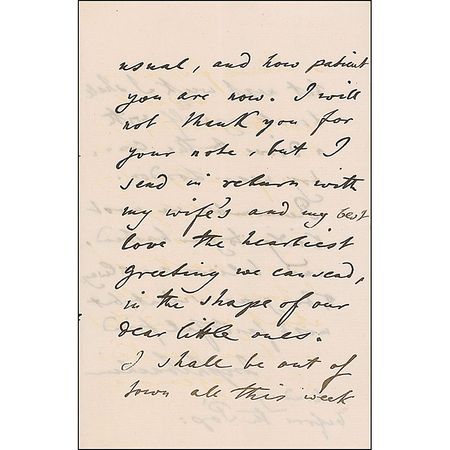 usual, and how patient
you are now. I will
not thank you for
your note, but I
send in return with
my wife's and my best
love the heartiest
greeting we can send,
in the shape of our
dear little ones.
I shall be out of
town all this week